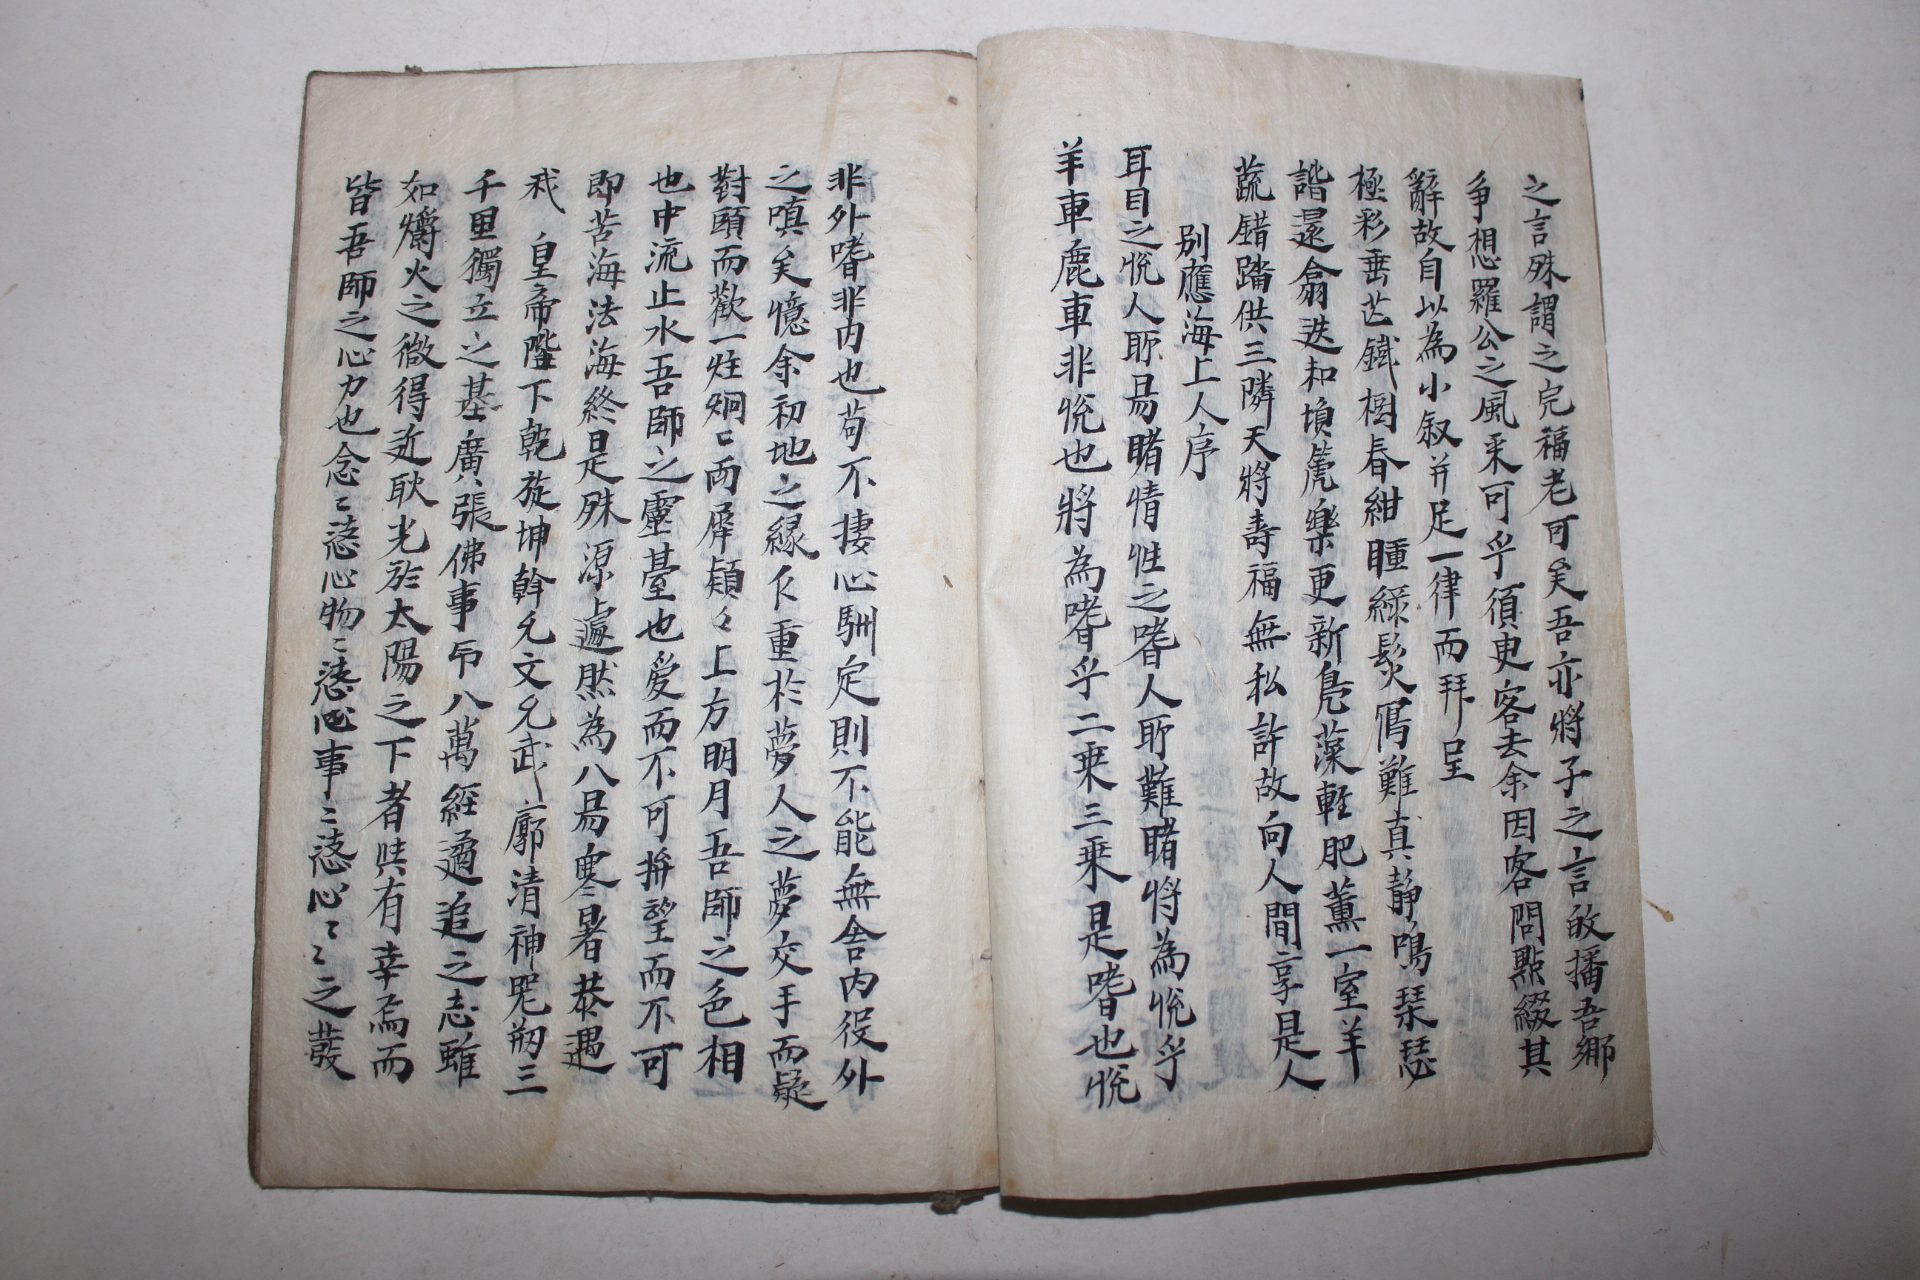 之言殊謂之完福老可矣吾亦將子之言攸播吾鄉
爭想羅公之風采可乎須臾客去余因客問點綴其
辭故自以為小叙并足一律而拜呈
極彩垂芒鐵樹春紺瞳綠鬓寫難真靜鳴琹瑟
諧還翕迭和塤篪樂更新鳧藻輊肥薰一室羊
蔬錯踏供三隣天將壽福無私許故向人間享是人
别應海上人序
耳目之悅人所易睹情性之嗜人所難睹將為悅乎
羊車鹿車非悅也將為嗜乎二乗三乗是嗜也悅
非外嗜非内也苟不捿心馴定則不能無舍内役外
之嗔矣憶余初地之緣仄重於夢人之夢交手而疑
對頤而歡一炷炯〻兩犀頳〻上方明月吾師之色相
也中流止水吾師之靈臺也爱而不可拚望而不可
即苦海法海終是殊源上遍然為八昜寒暑恭遇
我 皇帝陛下乾旋坤斡允文允武廓清神咒刱三
千里獨立之基廣張佛事帀八萬經遹追之志雖
如爝火之微得近耿光於太陽之下者咲有幸焉而
皆吾師之心力也念〻慈心物〻慈心事〻慈心〻〻之發